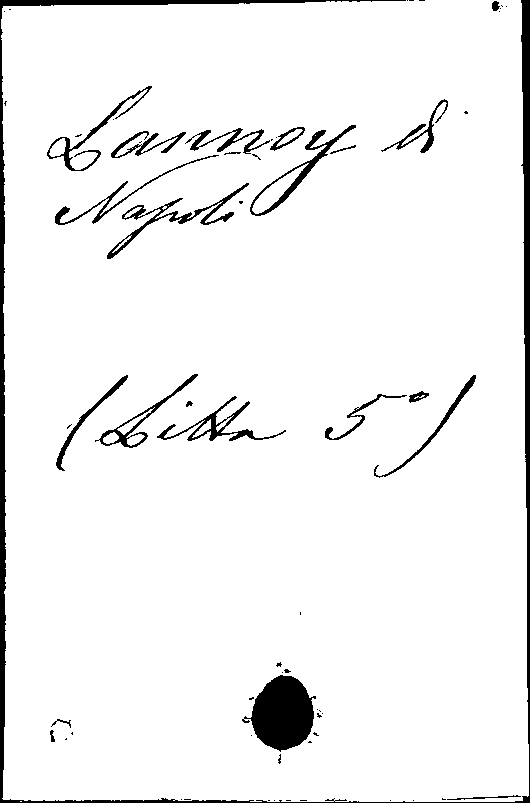 Lannoy di
Napoli
(Litta 5°)